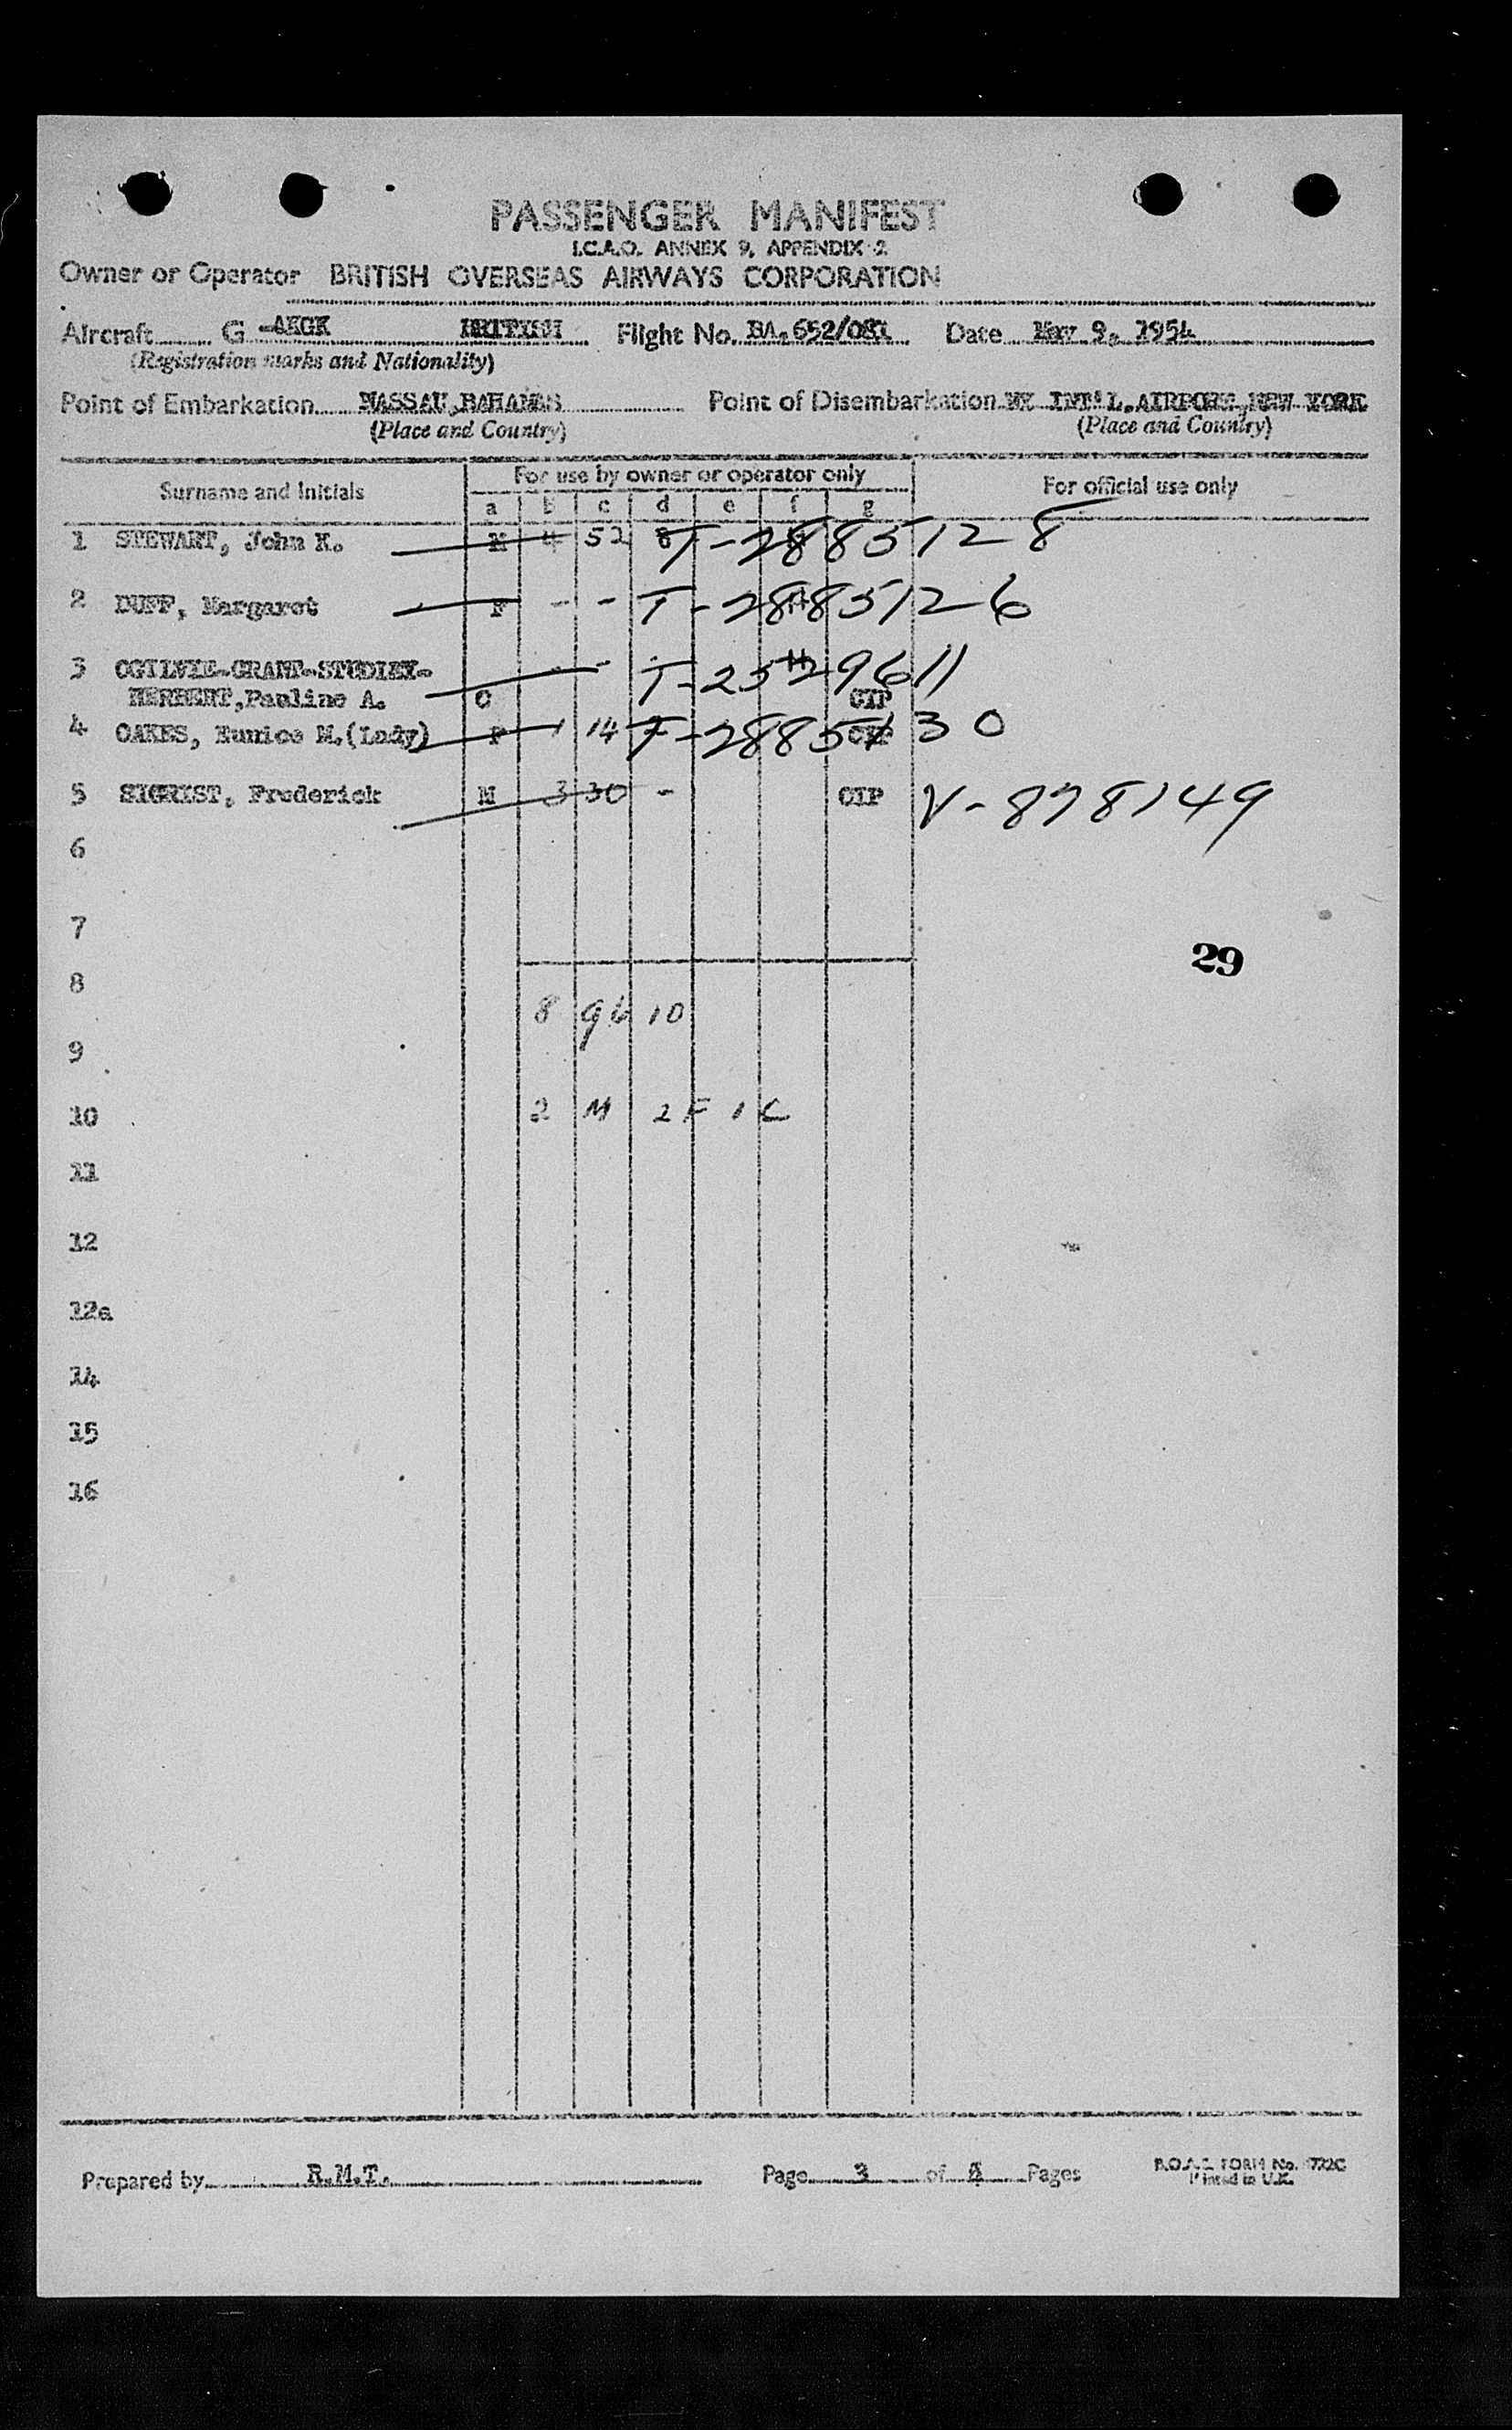 PASSENGER MANIFEST
I.C.A.O. ANNEX 9, APPENDIX 2
Owner or Operator BRITISH OVERSEAS AIRWAYS CORPORATION
Aircraft G -AKGK BRITISH Flight No. BA.652/081 Date May 9, 1954
(Registration marks and Nationality)
Point of Embarkation NASSAU,BAHAMAS Point of Disembarkation NY INT'L.AIRPORT,NEW YORK
(Place and Country) (Place and Country)
Surname and Initials For use by owner or operator only For official use only
a b c d e f g
1 STEWART, John K. M 4 52 T-2885128
2 DUFF, Margaret F - - T-2885126
3 OGILVIE-GRANT-STUDLEY- - - T-2529611
HERBERT,Pauline A. C CIP
4 OAKES, Eunice M.(Lady) F 1 14 T-2885130
5 SIGRIST, Frederick M 3 30 - CIP V-878149
6
7
29
8
8 96 10
9
10 2 M 2 F 1 C
11
12
12a
14
15
16
Prepared by R.M.T. Page 3 of Pages B.O.A.C. FORM No.
Printed in U.K.